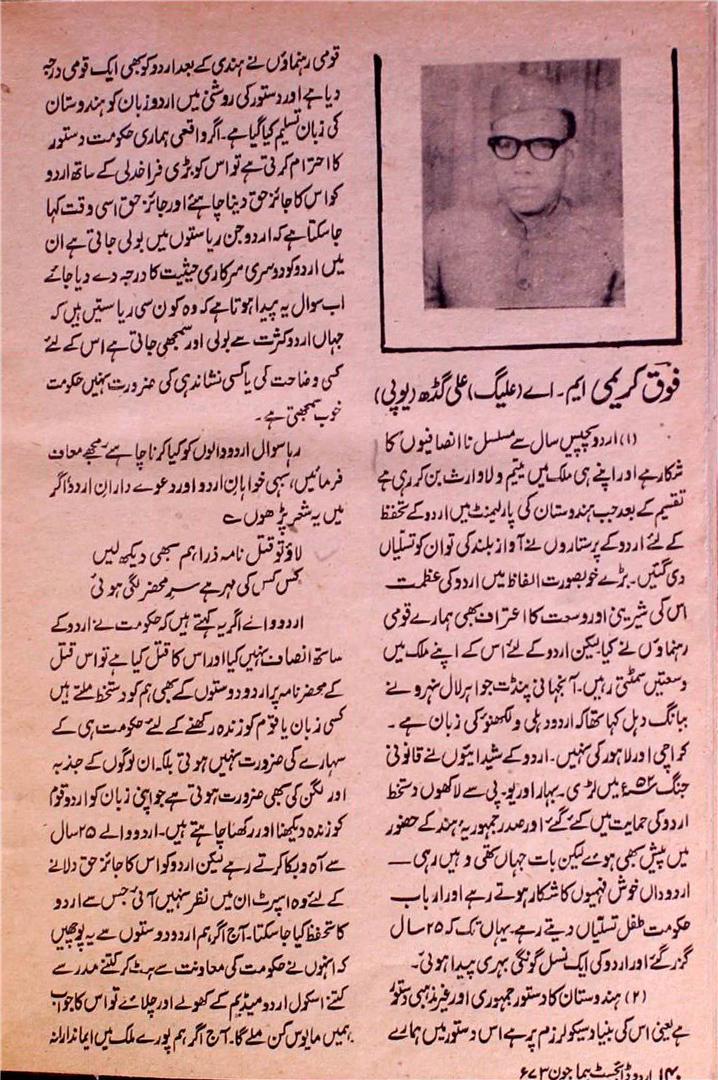 فوق کریمی ایم۔ اے (علیگ) علی گڈھ (یوپی)
(۱) اردو پچیس سال سے مسلسل ناانصافیوں کا
شکار ہے اور اپنے ہی ملک میں یتیم و لاوارث بن کر رہی ہے
تقسیم کے بعد جب ہندوستان کی پارلیمنٹ میں اردو کے تحفظ
کے لئے اردو کے پرستاروں نے آواز بلند کی تو ان کو تسلیاں
دی گئیں۔ بڑے خوبصورت الفاظ میں اردو کی عظمت
اس کی شیرینی اور وسعت کا اعتراف بھی ہمارے قومی
رہنماؤں نے کیا لیکن اردو کے لئے اس کے اپنے ملک میں
وسعتیں سمٹتی رہیں۔ آنجہانی پنڈت جواہر لال نہرو نے
ببانگ دہل کہا تھا کہ اردو دہلی و لکھنؤ کی زبان ہے۔
کراچی اور لاہور کی نہیں۔ اردو کے شیدائیوں نے قانونی
جنگ ۵۲ء میں لڑی۔ بہار اور یو۔پی سے لاکھوں دستخط
اردو کی حمایت میں کئے گئے اور صدر جمہوریہ ہند کے حضور
میں پیش بھی ہوئے لیکن بات جہاں تھی وہیں رہی —
اردو داں خوش فہمیوں کا شکار ہوتے رہے اور ارباب
حکومت طفل تسلیاں دیتے رہے۔ یہاں تک کہ ۲۵ سال
گزر گئے اور اردو کی ایک نسل گونگی بہری پیدا ہوئی۔
(۲) ہندوستان کا دستور جمہوری اور غیر مذہبی دستور
ہے یعنی اس کی بنیاد سیکولرزم پر ہے اس دستور میں ہمارے
قومی رہنماؤں نے ہندی کے بعد اردو کو بھی ایک قومی درجہ
دیا ہے اور دستور کی روشنی میں اردو زبان کو ہندوستان
کی زبان تسلیم کیا گیا ہے۔ اگر واقعی ہماری حکومت دستور
کا احترام کرتی ہے تو اس کو بڑی فراخدلی کے ساتھ اردو
کو اس کا جائز حق دینا چاہئے اور جائز حق اسی وقت کہا
جا سکتا ہے کہ اردو جن ریاستوں میں بولی جاتی ہے ان
میں اردو کو دوسری سرکاری حیثیت کا درجہ دے دیا جائے
اب سوال یہ پیدا ہوتا ہے کہ وہ کون سی ریاستیں ہیں کہ
جہاں اردو کثرت سے بولی اور سمجھی جاتی ہے اس کے لئے
کسی وضاحت کی یا کسی نشاندہی کی ضرورت نہیں حکومت
خوب سمجھتی ہے۔
رہا سوال اردو والوں کو کیا کرنا چاہئے مجھے معاف
فرمائیں، سبھی خواہانِ اردو اور دعوے دارانِ اردو اگر
میں یہ شعر پڑھوں ؎
لاؤ تو قتل نامہ ذرا ہم سبھی دیکھ لیں
کس کس کی مہر ہے سرِ محضر لگی ہوئی
اردو والے اگر یہ کہتے ہیں کہ حکومت نے اردو کے
ساتھ انصاف نہیں کیا اور اس کا قتل کیا ہے تو اس قتل
کے محضر نامہ پر اردو دوستوں کے بھی ہم کو دستخط ملتے ہیں
کسی زبان یا قوم کو زندہ رکھنے کے لئے حکومت ہی کے
سہارے کی ضرورت نہیں ہوتی بلکہ ان لوگوں کے جذبہ
اور لگن کی بھی ضرورت ہوتی ہے جو اپنی زبان کو اور قوم
کو زندہ دیکھنا اور رکھنا چاہتے ہیں۔ اردو والے ۲۵ سال
سے آہ و بکا کرتے رہے لیکن اردو کو اس کا جائز حق دلانے
کے لئے وہ اسپرٹ ان میں نظر نہیں آئی جس سے اردو
کا تحفظ کیا جا سکتا۔ آج اگر ہم اردو دوستوں سے یہ پوچھیں
کہ انہوں نے حکومت کی معاونت سے ہٹ کر کتنے مدرسے
کتنے اسکول اردو میڈیم کے کھولے اور چلائے تو اس کا جواب
ہمیں مایوس کن ملے گا۔ آج اگر ہم پورے ملک میں ایماندارانہ
۱۴۰ اردو ڈائجسٹ ہما جون ۷۳ء